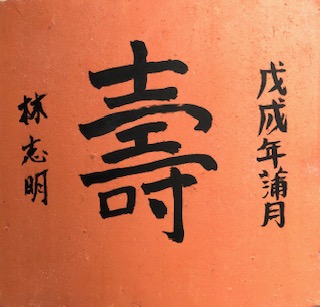 戊戌年蒲月
壽
林志明